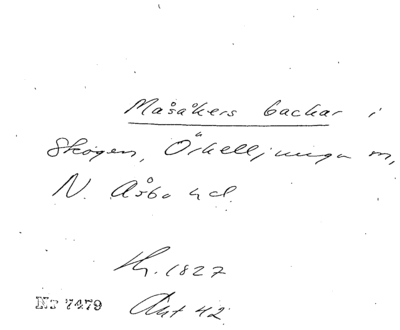 Måsåkers backar i
Skogen, Örkelljunga sn,
N. Åsbo hd.
Kr. 1827
Nr 7479
Akt 42